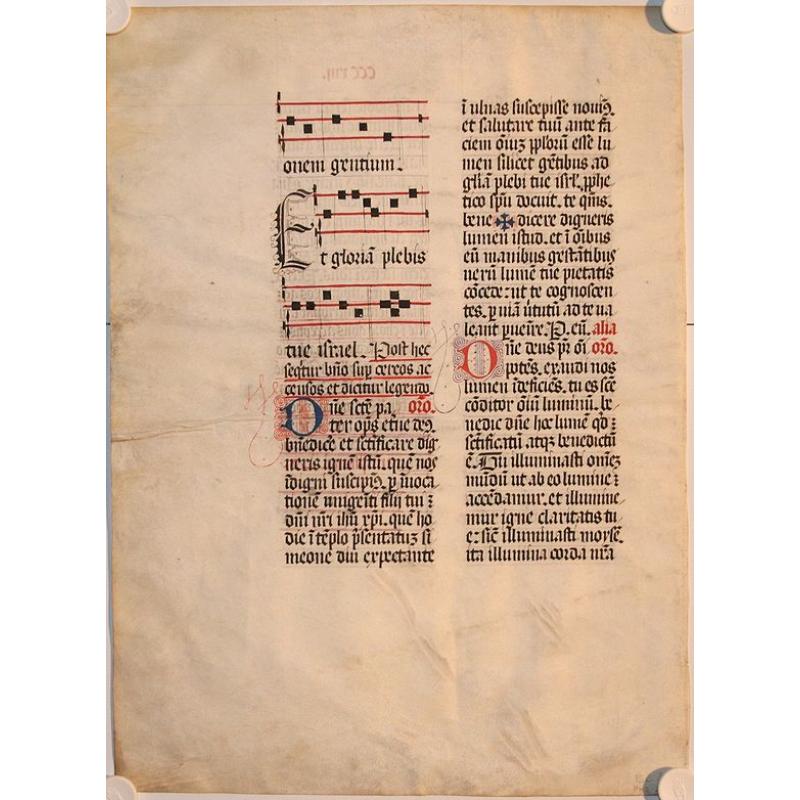 onem gentium.
Et gloriā plebis
tue israel. Post hec
seqt̄ur bn̄o sup̄ cereos ac
censos et dicitur legendo.
Dn̄e sctē pa oro.
ter op̄s etn̄e deꝰ
bn̄edicē et sc̄tificare dig
neris ignē istū. quē nos
īdigni suscipiꝰ. p̱ īuoca
tionē unigeīti filij tui ⁊
dn̄i nr̄i ih̄u xp̄i. quē ho
die ī tēplo p̄sentatuꝫ si
meone diu expectante
ī ulnas suscepisse nouiꝰ.
et salutare tuū ante fa
ciem oīuꝫ pp̄lorū esse lu
men silicet gētibus ad
gl̄iā plebi tue isrl̄. pp̄he
tico sp̄u docuit. te qm̄s.
bene ✠ dicere digneris
lumen istud. et ī oībus
eū manibus gestātibus
uerū lumē tue pietatis
cōcede: ut te cognoscen
tes. p̱ uiā ūtutū ad te ua
leant puēire. P. eū. alia
Dn̄e deus pr̄ oī oro.
potēs. exaudi nos
lumen īdeficiēs. tu es scē
cōditor oīū luminū. be
nedic dn̄e hoc lumē qd̄ ꝫ
sc̄tificatū atqꝫ benedictū
ē. Qui illuminasti omēꝫ
mūdū ut ab eo lumine ꝫ
accēdamur. et illumine
mur igne claritatis tu
e: sic̄ illuminasti moysē.
ita illumina corda nr̄a